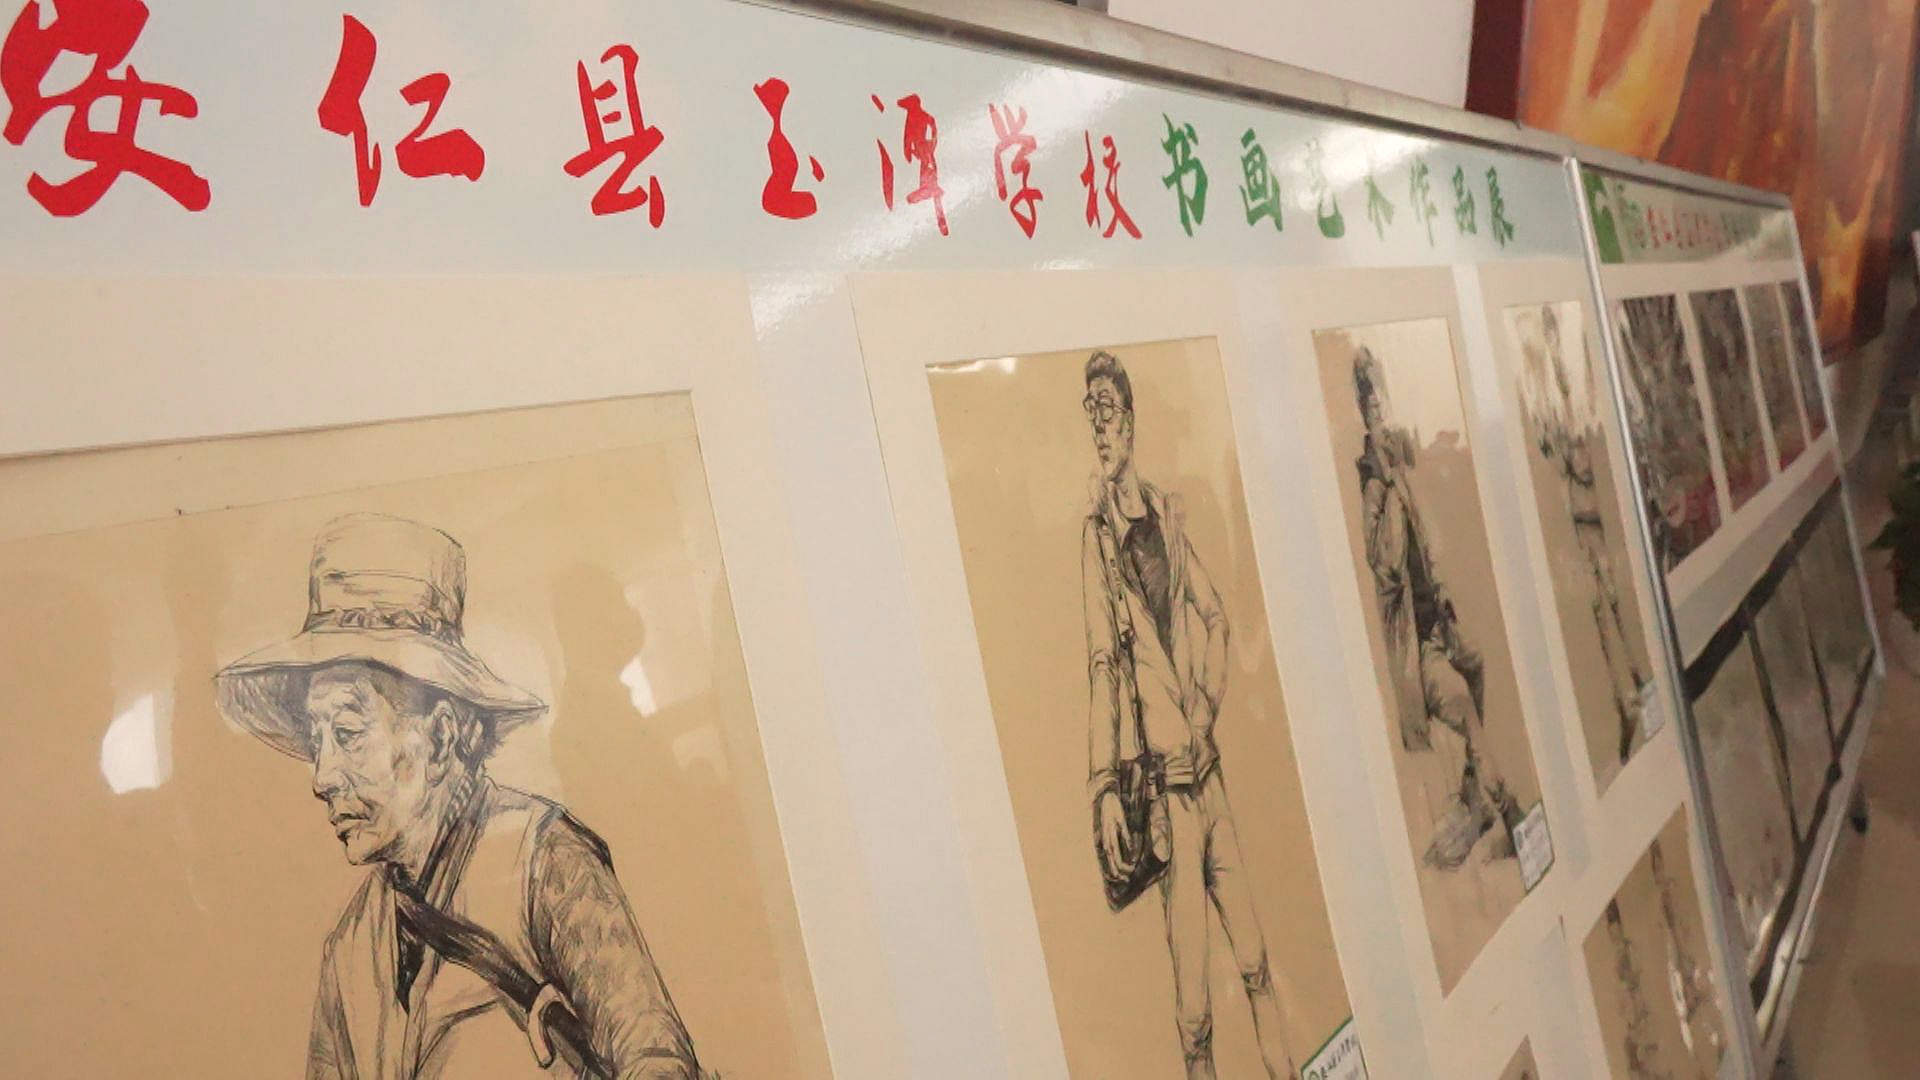 安仁县玉潭学校书画艺术作品展